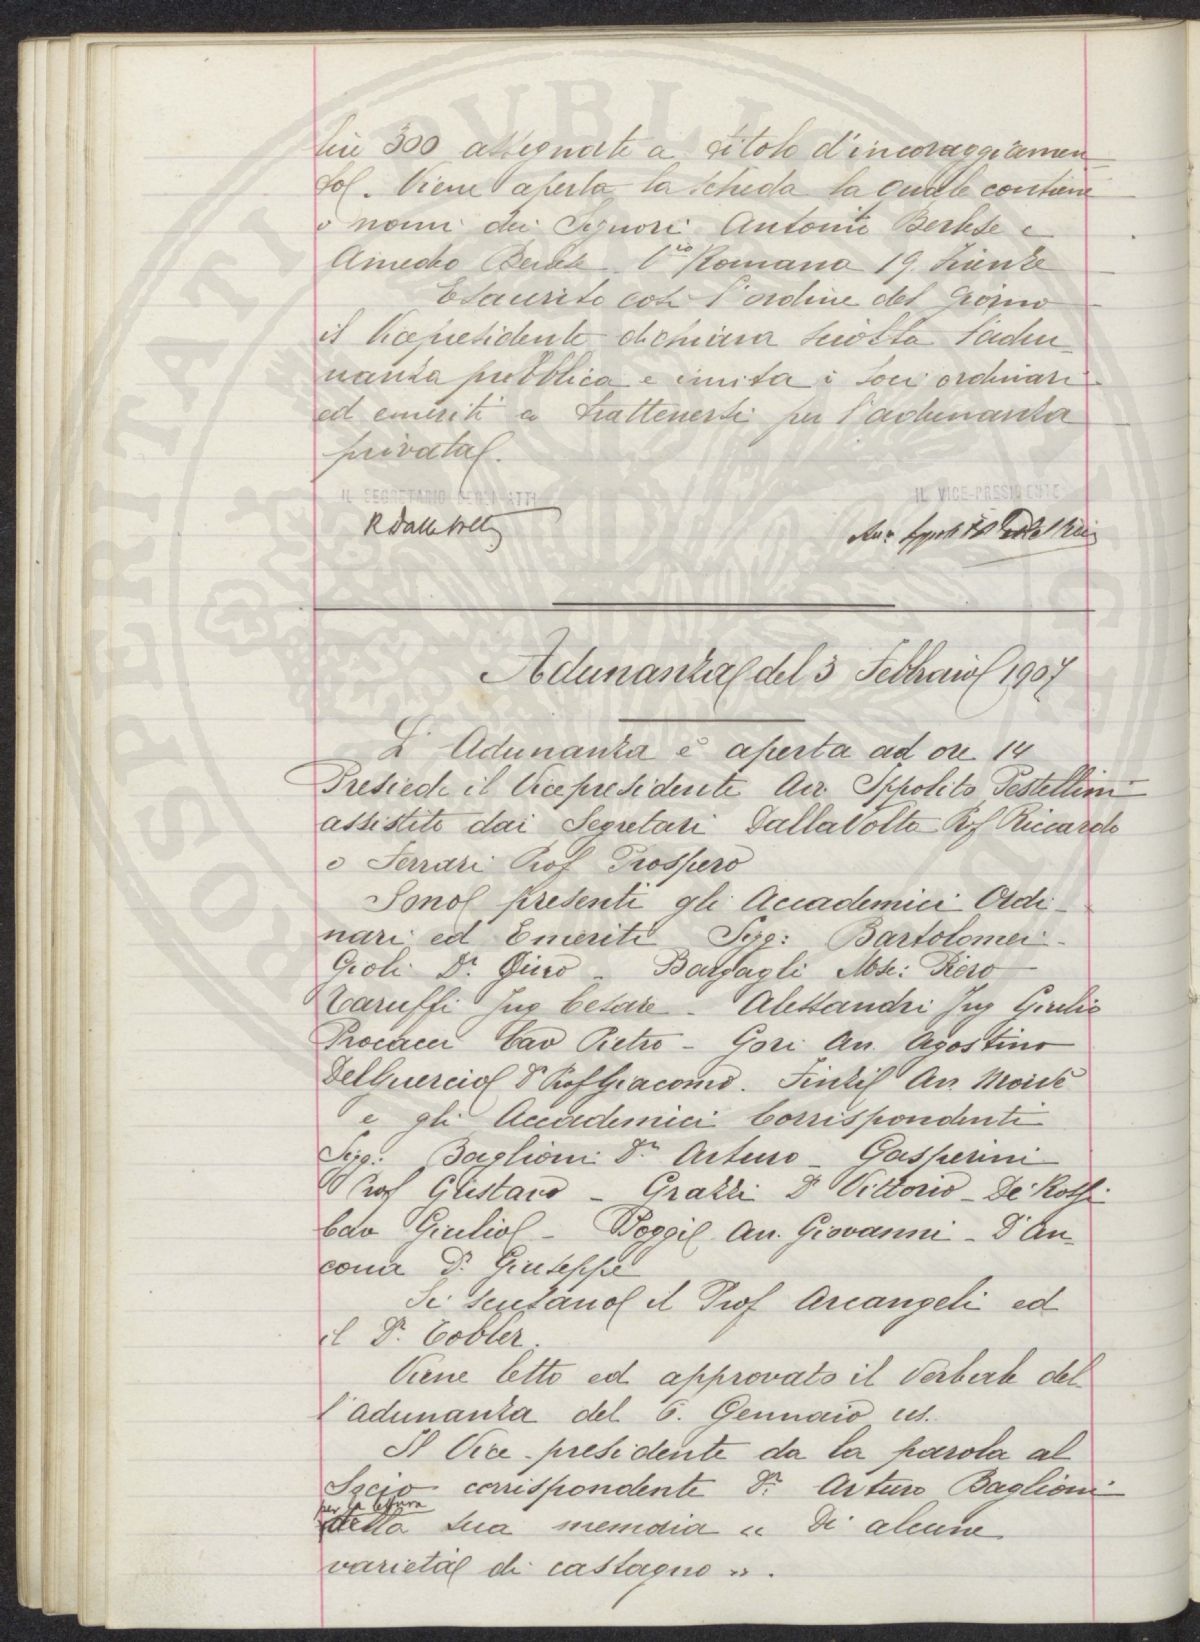 lire 300 assegnate a titolo d'incoraggiamen-
to. Viene aperta la scheda la quale contiene
i nomi dei Signori Antonio Berlese e
Amedeo Berlese Via Romana 19. Firenze
Esaurito così l'ordine del giorno
il Vicepresidente dichiara sciolta l'adu-
nanza pubblica e invita i soci ordinari
ed emeriti a trattenersi per l'adunanza
privata.
IL SEGRETARIO DEGLI ATTI
IL VICE-PRESIDENTE
R Dalla Volta
Avv. Ippolito Pestellini
Adunanza del 3 Febbraio 1907
L'Adunanza è aperta ad ore 14
Presiede il Vicepresidente Avv. Ippolito Pestellini
assistito dai Segretari Dalla Volta Prof Riccardo
e Ferrari Prof Prospero
Sono presenti gli Accademici Ordi-
nari ed Emeriti Sigg: Bartolomei-
Gioli Dr. Gino - Bargagli Mse: Piero
Taruffi Ing Cesare - Alessandri Ing Giulio
Procacci Cav Pietro - Gori Avv. Agostino
DelGuercio Dr Prof Giacomo. Finzi Avv. Moisè
e gli Accademici Corrispondenti
Sigg: Baglioni Dr. Arturo - Gasperini
Prof Gustavo - Grazzi Dr Vittorio - De Rossi
Cav Giulio - Poggi Avv. Giovanni - D'An-
cona Dr. Giuseppe
Si scusano il Prof Arcangeli ed
il Dr. Tobler.
Viene letto ed approvato il Verbale del
l'adunanza del 6. Gennaio us.
Il Vice-presidente da la parola al
Socio corrispondente Dr. Arturo Baglioni
per la lettura
della sua memoria « Di alcune
varietà di castagno ».